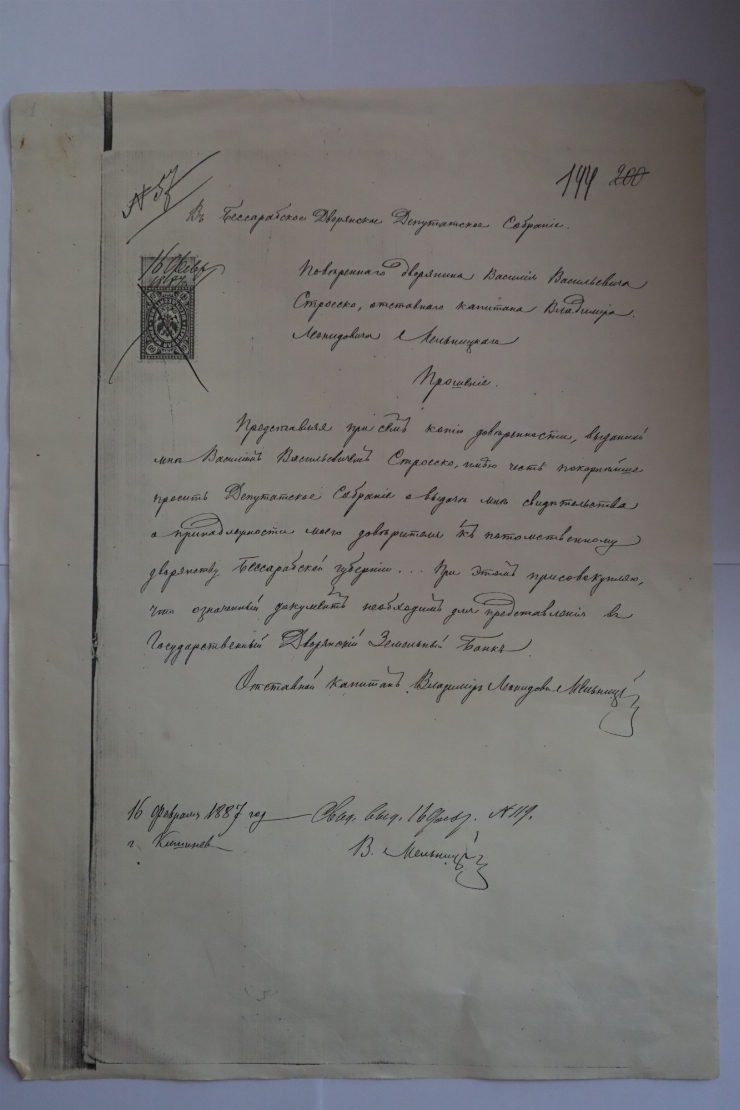 N 57
144 200
Въ Бессарабское Дворянское Депутатское Собраніе.
16 Февр
1887
Повѣреннаго дворянина Василія Васильевича
Стросско, отставного капитана Владиміра
Леонидовича Мельницкаго
Прошеніе.
Представляя при семъ копію довѣренности, выданной
мнѣ Василіемъ Васильевичемъ Стросско, имѣю честь покорнѣйше
просить Депутатское Собраніе о выдачѣ мнѣ свидѣтельства
о принадлежности моего довѣрителя къ потомственному
дворянству Бессарабской губерніи... При этомъ присовокупляю,
что означенный документъ необходимъ для представленія въ
Государственный Дворянскій Земельный Банкъ.
Отставной капитанъ Владиміръ Леонидовъ Мельницкій
16 февраля 1887 год
Свид. выд. 16 февр. N 119.
г. Кишинев
В. Мельницкій